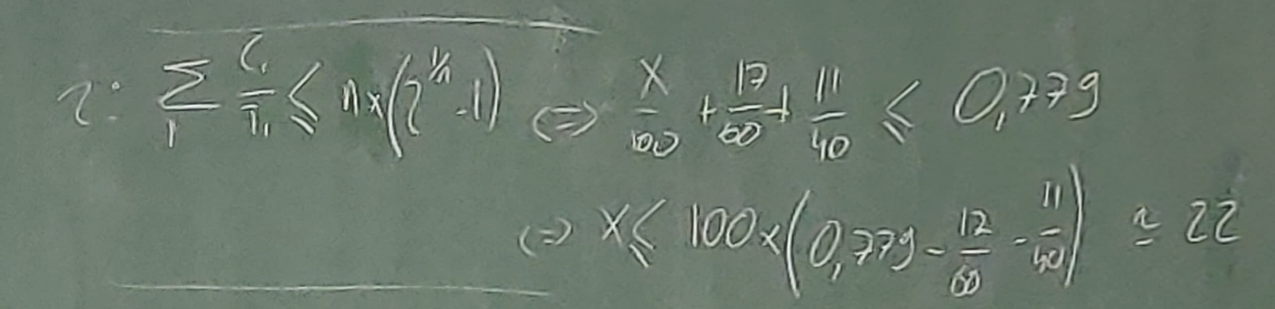 2: ∑ᵢ Cᵢ/Tᵢ ≤ n×(2^(1/n) - 1) <=> X/100 + 17/60 + 11/40 ≤ 0,779
<=> X ≤ 100×(0,779 - 17/60 - 11/40) ≃ 22